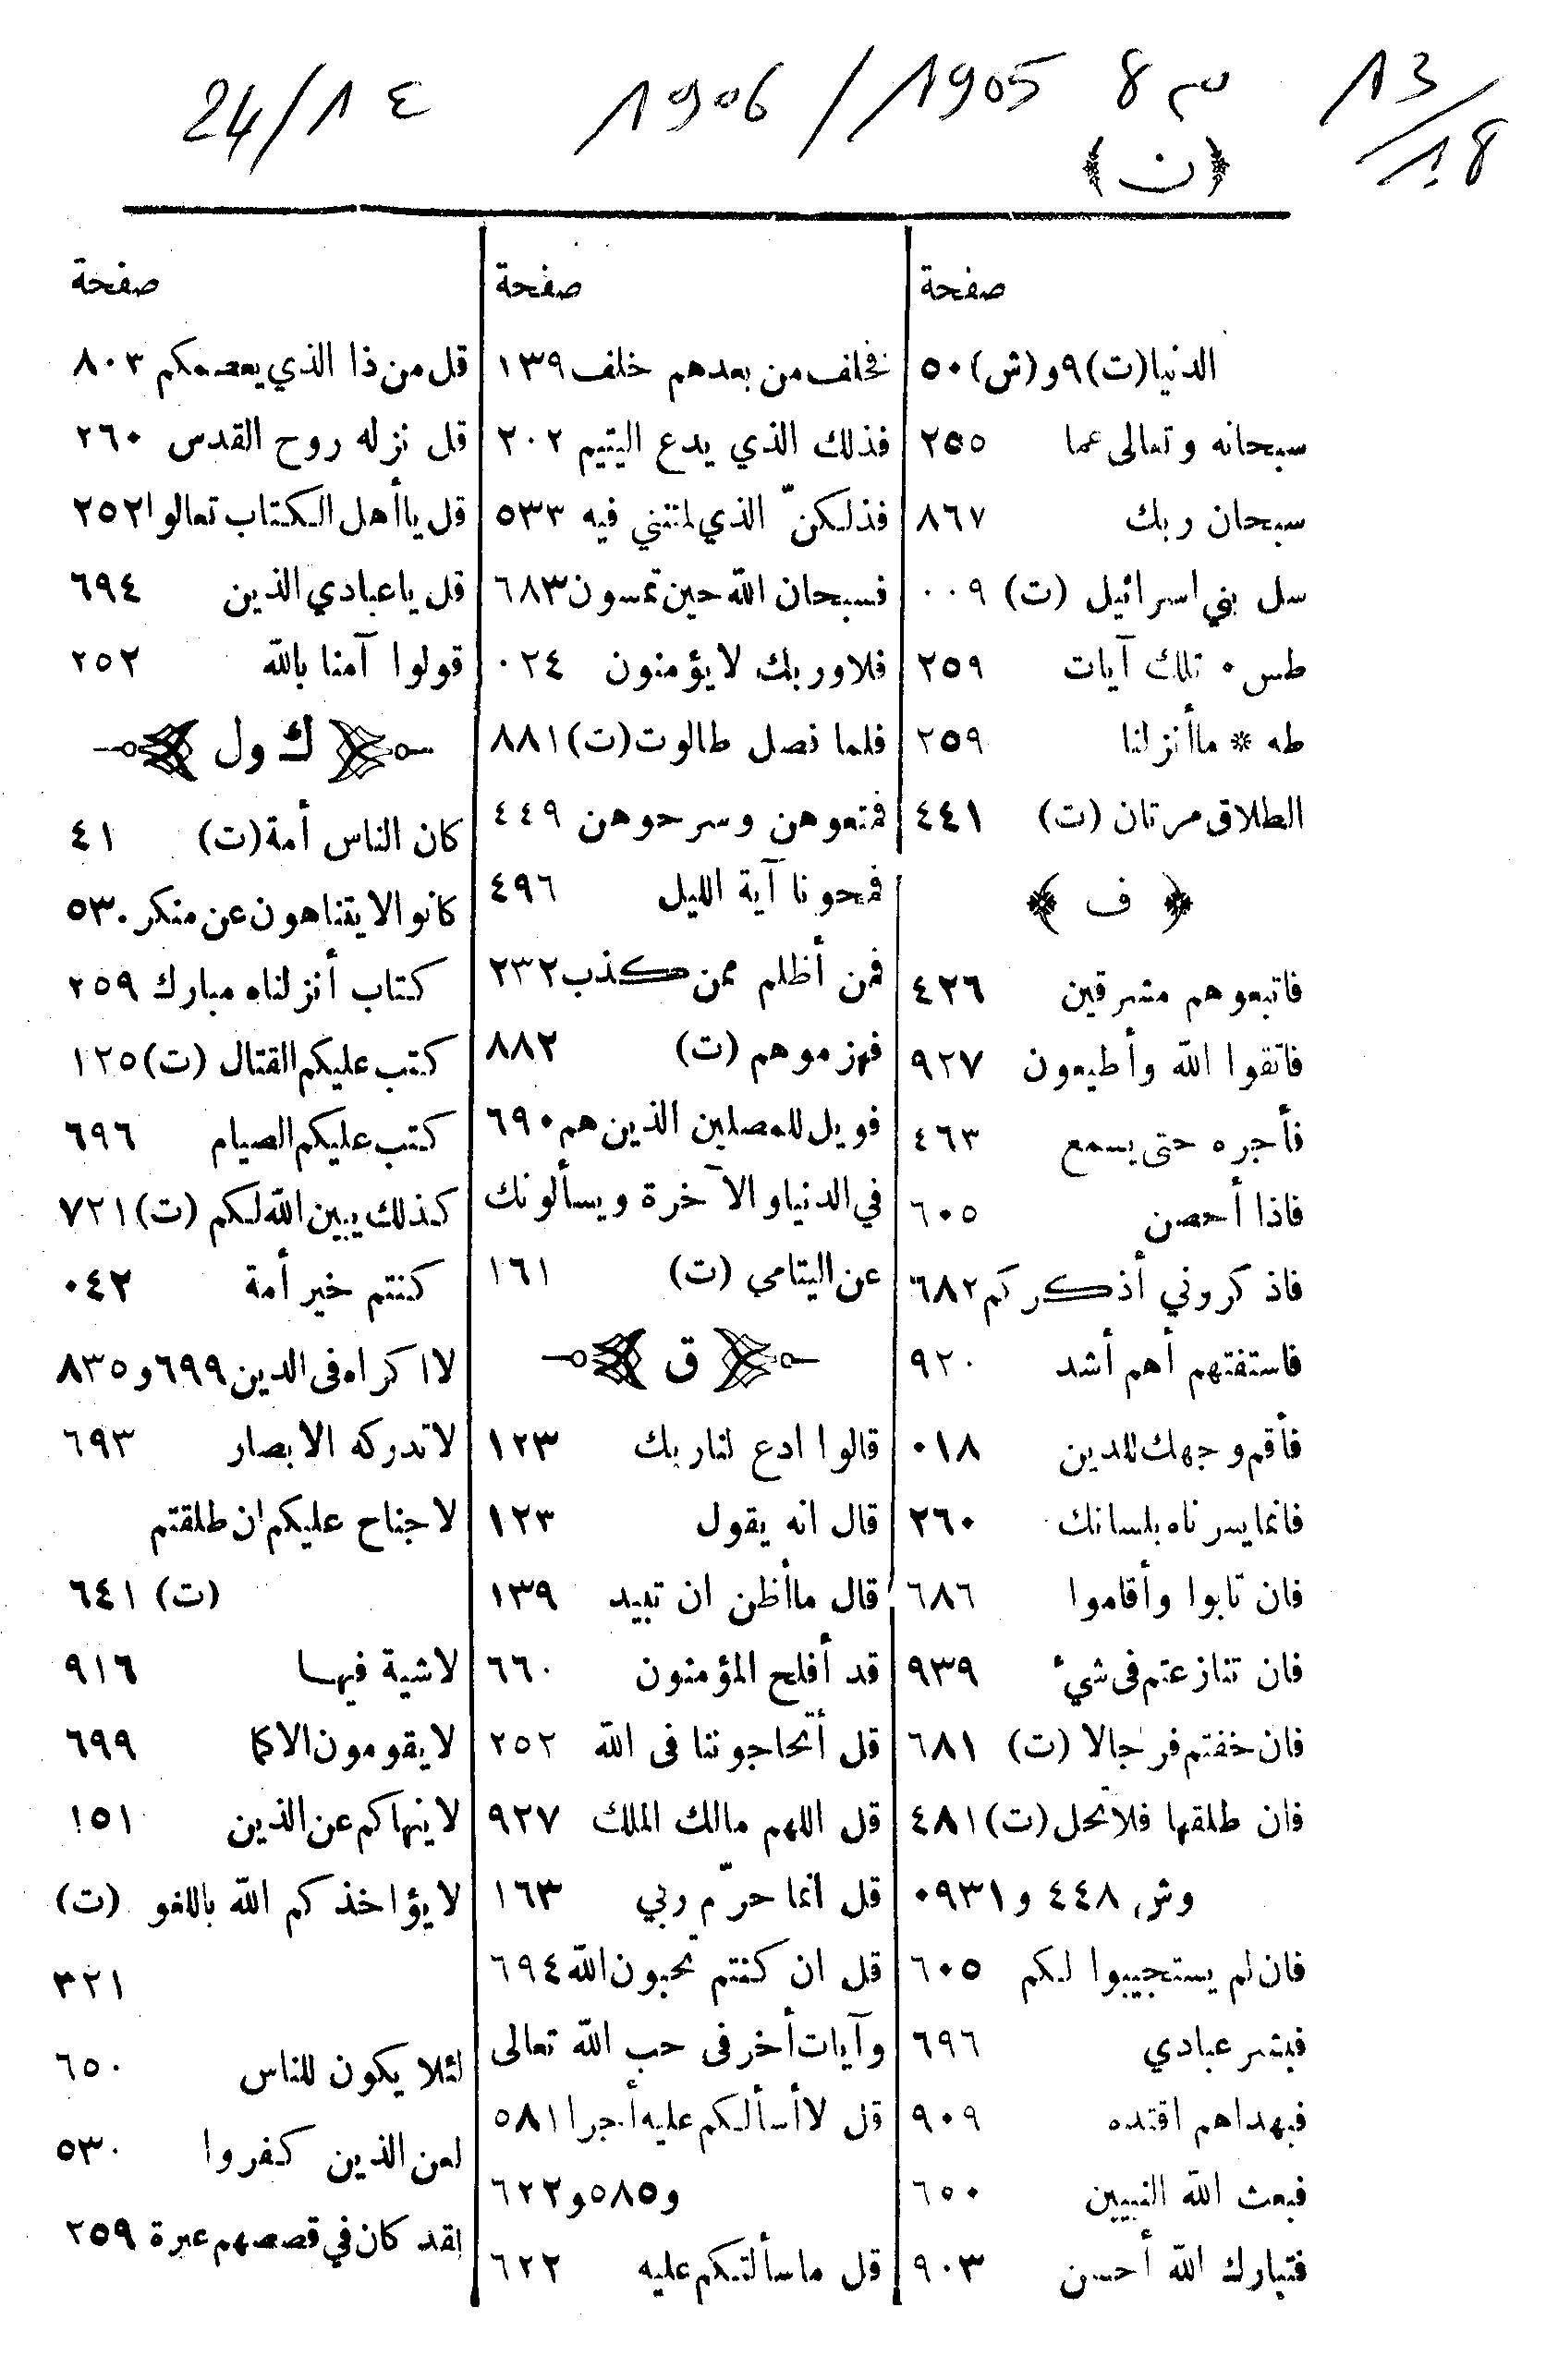 13/18 س 8 1905/1906 24/1 ع
﴿ن﴾
صفحة
الدنيا (ت) ٩ و (ش) ٥٠
سبحانه وتعالى عما ٢٥٥
سبحان ربك ٨٦٧
سل بني اسرائيل (ت) ٠٠٩
طس ٠ تلك آيات ٢٥٩
طه * ماأنزلنا ٢٥٩
الطلاق مرتان (ت) ٤٤١
﴿ ف ﴾
فاتبعوهم مشرقين ٤٢٦
فاتقوا الله وأطيعون ٩٢٧
فأجره حتى يسمع ٤٦٣
فاذا أحصن ٦٠٥
فاذكروني أذكركم ٦٨٢
فاستفتهم أهم أشد ٩٢٠
فأقم وجهك للدين ٠١٨
فانما يسرناه بلسانك ٢٦٠
فان تابوا وأقاموا ٦٨٦
فان تنازعتم فى شيء ٩٣٩
فان خفتم فرجالا (ت) ٦٨١
فان طلقها فلا تحل (ت) ٤٨١
وش ٤٤٨ و ٠٩٣١
فان لم يستجيبوا لكم ٦٠٥
فبشر عبادي ٦٩٦
فبهداهم اقتده ٩٠٩
فبعث الله النبيين ٦٥٠
فتبارك الله أحسن ٩٠٣
صفحة
فخلف من بعدهم خلف ١٣٩
فذلك الذي يدع اليتيم ٢٠٢
فذلكنّ الذي لمتنني فيه ٥٣٣
فسبحان الله حين تمسون ٦٨٣
فلا وربك لا يؤمنون ٠٢٤
فلما فصل طالوت (ت) ٨٨١
فمتعوهن وسرحوهن ٤٤٩
فمحونا آية الليل ٤٩٦
فمن أظلم ممن كذب ٢٣٢
فهزموهم (ت) ٨٨٢
فويل للمصلين الذين هم ٦٩٠
في الدنيا والآخرة ويسألونك
عن اليتامى (ت) ١٦١
ق
قالوا ادع لنا ربك ١٢٣
قال انه يقول ١٢٣
قال ماأظن ان تبيد ١٣٩
قد أفلح المؤمنون ٦٦٠
قل أتحاجوننا فى الله ٢٥٢
قل اللهم مالك الملك ٩٢٧
قل انما حرّم ربي ١٦٣
قل ان كنتم تحبون الله ٦٩٤
وآيات أخر فى حب الله تعالى
قل لا أسألكم عليه أجرا ٥٨١
و٥٨٥ و٦٢٢
قل ماسألتكم عليه ٦٢٢
صفحة
قل من ذا الذي يعصمكم ٨٠٣
قل نزله روح القدس ٢٦٠
قل ياأهل الكتاب تعالوا ٢٥٢
قل ياعبادي الذين ٦٩٤
قولوا آمنا بالله ٢٥٢
ك ول
كان الناس أمة (ت) ٤١
كانوا لا يتناهون عن منكر ٥٣٠
كتاب أنزلناه مبارك ٢٥٩
كتب عليكم القتال (ت) ١٢٥
كتب عليكم الصيام ٦٩٦
كذلك يبين الله لكم (ت) ٧٢١
كنتم خير أمة ٠٤٢
لا اكراه فى الدين ٦٩٩ و ٨٣٥
لا تدركه الابصار ٦٩٣
لا جناح عليكم ان طلقتم
(ت) ٦٤١
لا شية فيها ٩١٦
لا يقومون الا كما ٦٩٩
لا ينهاكم عن الذين ١٥١
لا يؤاخذكم الله باللغو (ت)
٣٢١
لئلا يكون للناس ٦٥٠
لعن الذين كفروا ٥٣٠
لقد كان في قصصهم عبرة ٢٥٩